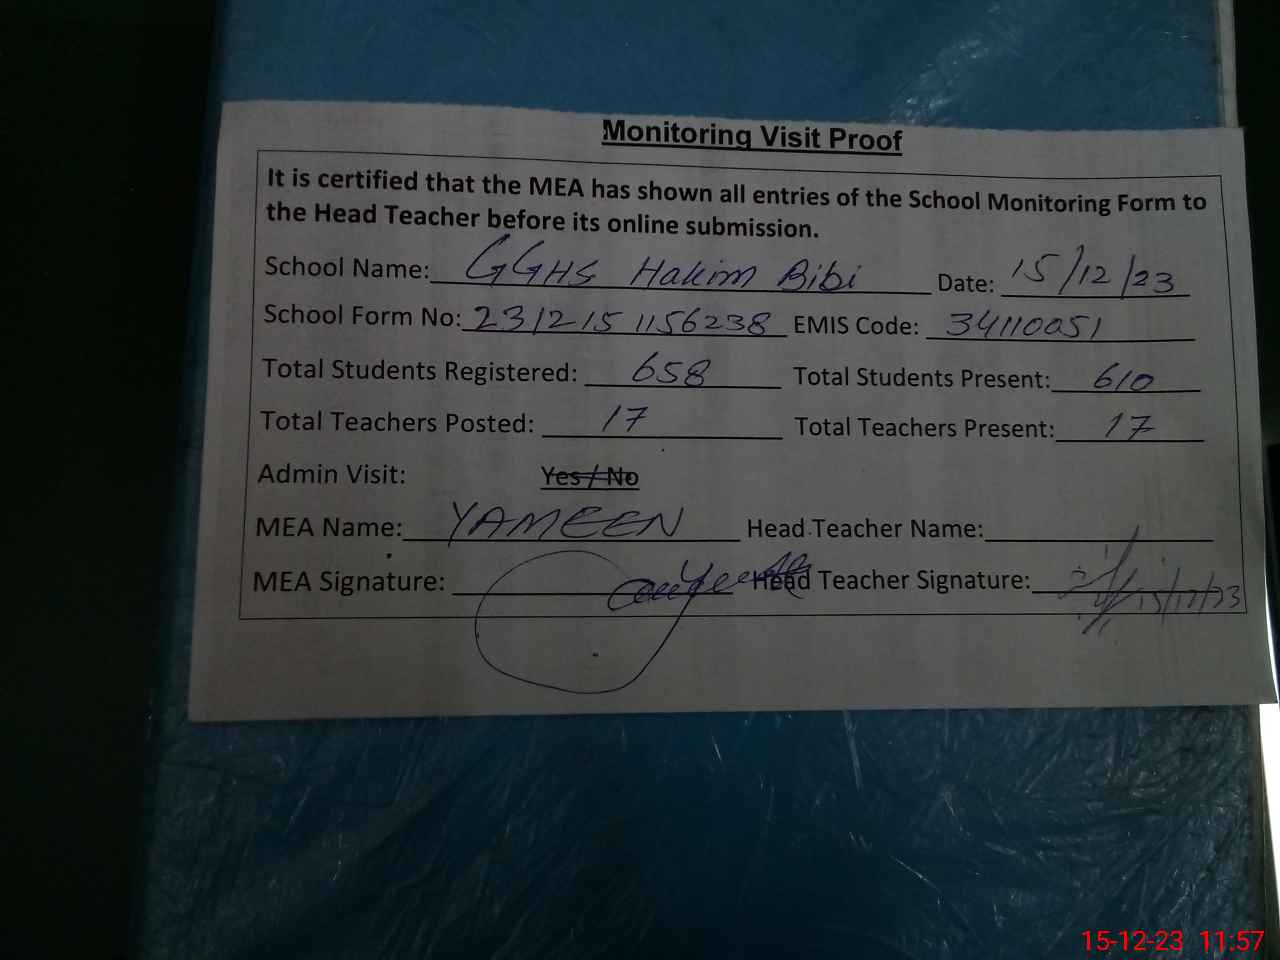 Monitoring Visit Proof
It is certified that the MEA has shown all entries of the School Monitoring Form to
the Head Teacher before its online submission.
School Name: GGHS Hakim Bibi Date: 15/12/23
School Form No: 231215 1156238 EMIS Code: 34110051
Total Students Registered: 658 Total Students Present: 610
Total Teachers Posted: 17 Total Teachers Present: 17
Admin Visit: Yes / No
MEA Name: YAMEEN Head Teacher Name:
MEA Signature: Head Teacher Signature: 15/12/23
15-12-23 11:57